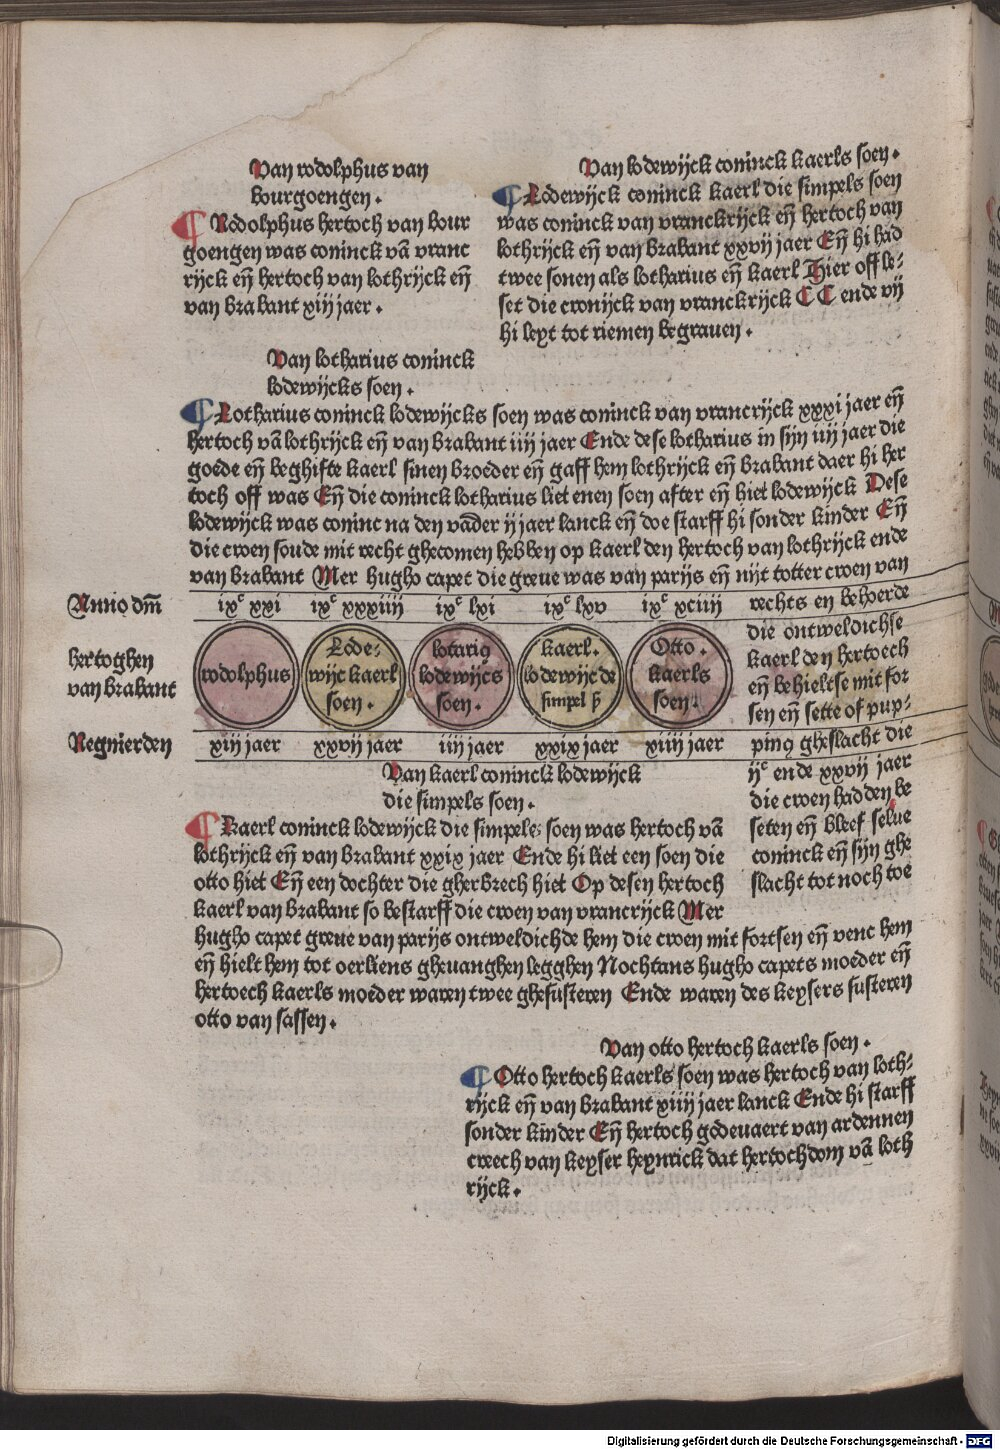 Van rodolphus van
bourgoengen.
¶ Rodolphus hertoch van bour
goengen was coninck vā vranc
rijck eñ hertoch van lothrijck eñ
van brabant xiij jaer.
Van lodewijck coninck kaerls soen.
¶ Lodewijck coninck kaerl die simpels soen
was coninck van vranckrijck eñ hertoch van
lothrijck eñ van brabant xxvij jaer Eñ hi had
twee sonen als lotharius eñ kaerl Hier off le⸗
set die cronijck van vranckrijck C C ende vij
hi leyt tot riemen begrauen.
Van lotharius coninck
lodewijcks soen.
¶ Lotharius coninck lodewijcks soen was coninck van vrancrijck xxxi jaer eñ
hertoch vā lothrijck eñ van brabant iiij jaer Ende dese lotharius in sijn iiij jaer die
goede eñ beghifte kaerl sinen broeder eñ gaff hem lothrijck eñ brabant daer hi her
toch off was Eñ die coninck lotharius liet enen soen after eñ hiet lodewijck Dese
lodewijck was coninc na den vād̄er ij jaer lanck eñ doe starff hi sonder kinder Eñ
die croen soude mit recht ghecomen hebben op kaerl den hertoch van lothrijck ende
van brabant Mer hugho capet die greue was van parijs eñ nijt totter croen van
Anno dm̄ ixᶜ xxi ixᶜ xxxiiij ixᶜ lxi ixᶜ lxv ixᶜ xciiij
hertoghen
van brabant
rodolphus
Lode⸗
wijc kaerl
soen.
lotariꝰ
lodewijcs
soen.
kaerl.
lodewijc de
simpel
Otto.
kaerls
soen.
Regnierden xiij jaer xxvij jaer iiij jaer xxix jaer xiiij jaer
rechts en behoerde
die ontweldichse
kaerl den hertoech
eñ behieltse mit for
sen eñ sette of pup⸗
pinꝰ gheslacht die
ijᶜ ende xxvij jaer
die croen hadden be
seten eñ bleef selue
coninck eñ sijn ghe
slacht tot noch toe
Van kaerl coninck lodewijck
die simpels soen.
¶ Kaerl coninck lodewijck die simpels soen was hertoch vā
lothrijck eñ van brabant xxix jaer Ende hi liet een soen die
otto hiet Eñ een dochter die gherbrech hiet Op desen hertoch
kaerl van brabant so bestarff die croen van vrancrijck Mer
hugho capet greue van parijs ontweldichde hem die croen mit fortsen eñ venc hem
eñ hielt hem tot oerliens gheuanghen legghen Nochtans hugho capets moeder eñ
hertoech kaerls moeder waren twee ghesusteren Ende waren des keysers susteren
otto van sassen.
Van otto hertoch kaerls soen.
¶ Otto hertoch kaerls soen was hertoch van loth⸗
rijck eñ van brabant xiiij jaer lanck Ende hi starff
sonder kinder Eñ hertoch godeuaert van ardennen
creech van keyser heynrick dat hertochdom vā loth
rijck.
Digitalisierung gefördert durch die Deutsche Forschungsgemeinschaft - DFG